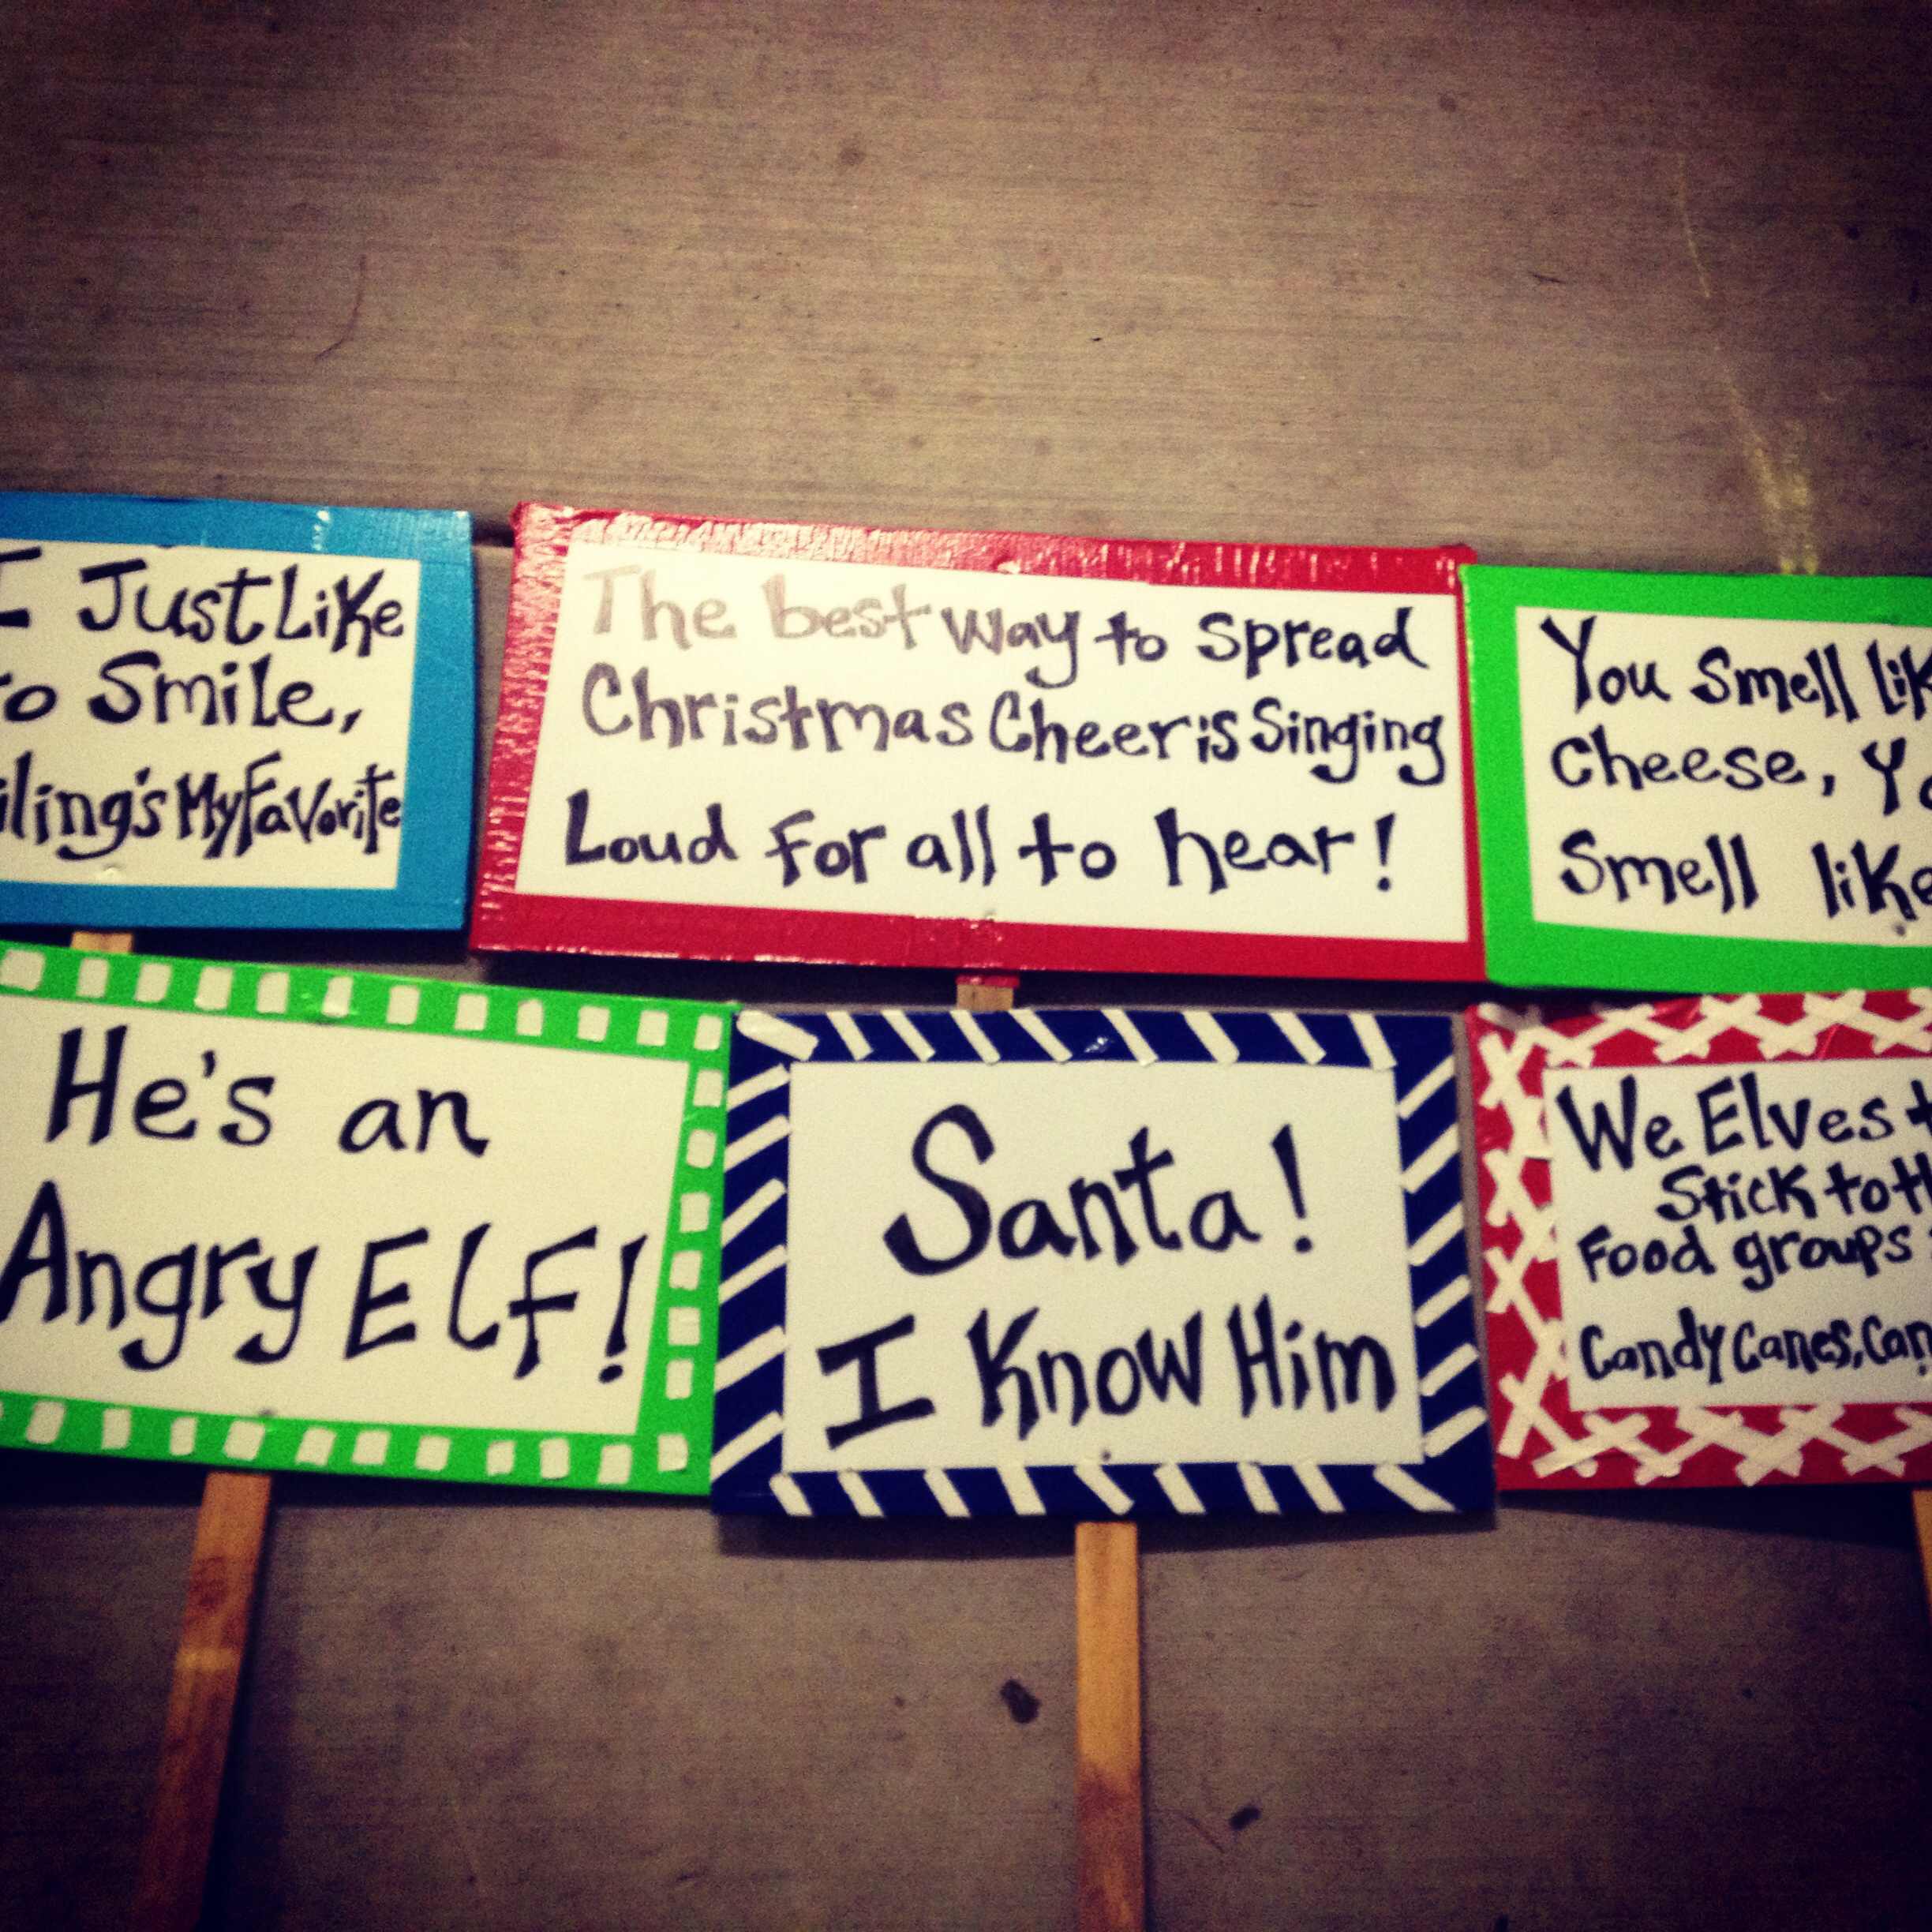 I Just Like
to Smile,
iling's My Favorite
The best way to spread
Christmas Cheer is Singing
Loud for all to hear!
You smell lik
cheese, Yo
smell like
He's an
Angry Elf!
Santa!
I Know Him
We Elves t
Stick to th
Food groups
Candy Canes, Can